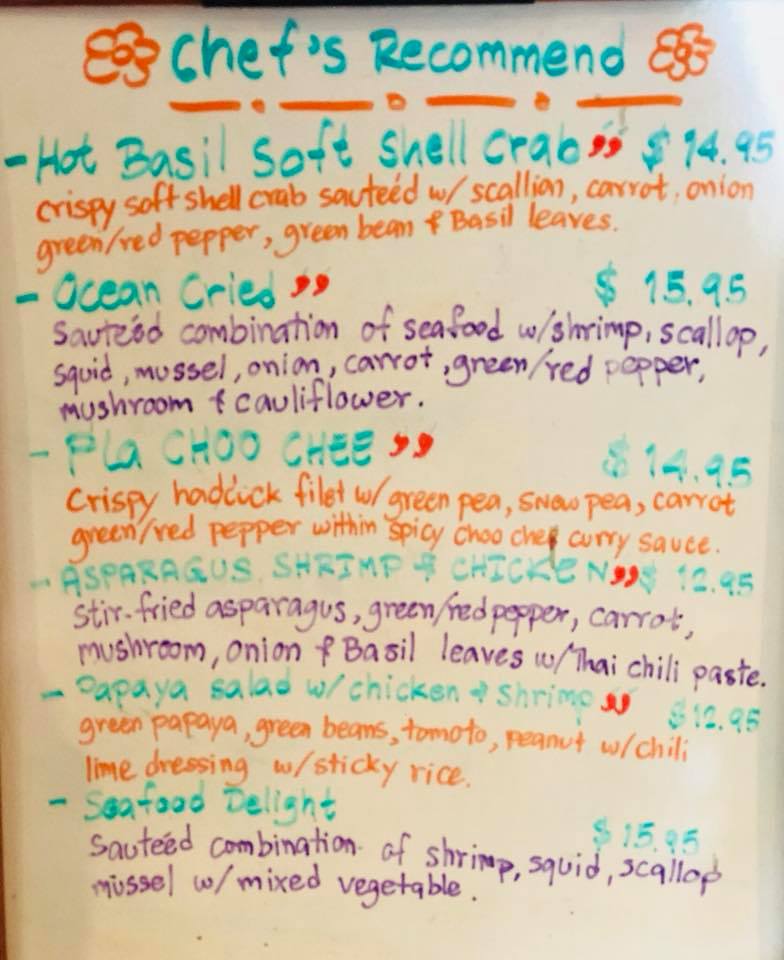 Chef's Recommend
- Hot Basil Soft Shell Crab $ 14.95
crispy soft shell crab sauteéd w/ scallion, carrot, onion
green/red pepper, green bean & Basil leaves.
- Ocean Cried $ 15.95
Sauteéd combination of seafood w/shrimp, scallop,
squid, mussel, onion, carrot, green/red pepper,
mushroom & cauliflower.
- Pla CHOO CHEE $ 14.95
Crispy hadduck filet w/ green pea, snow pea, carrot
green/red pepper within spicy choo chee curry sauce.
- ASPARAGUS SHRIMP & CHICKEN $ 12.95
Stir-fried asparagus, green/red pepper, carrot,
mushroom, onion & Basil leaves w/Thai chili paste.
- Papaya salad w/chicken & Shrimp $12.95
green papaya, green beans, tomoto, peanut w/chili
lime dressing w/sticky rice.
- Seafood Delight
$ 15.95
Sauteéd combination of shrimp, squid, scallop
mussel w/mixed vegetable.